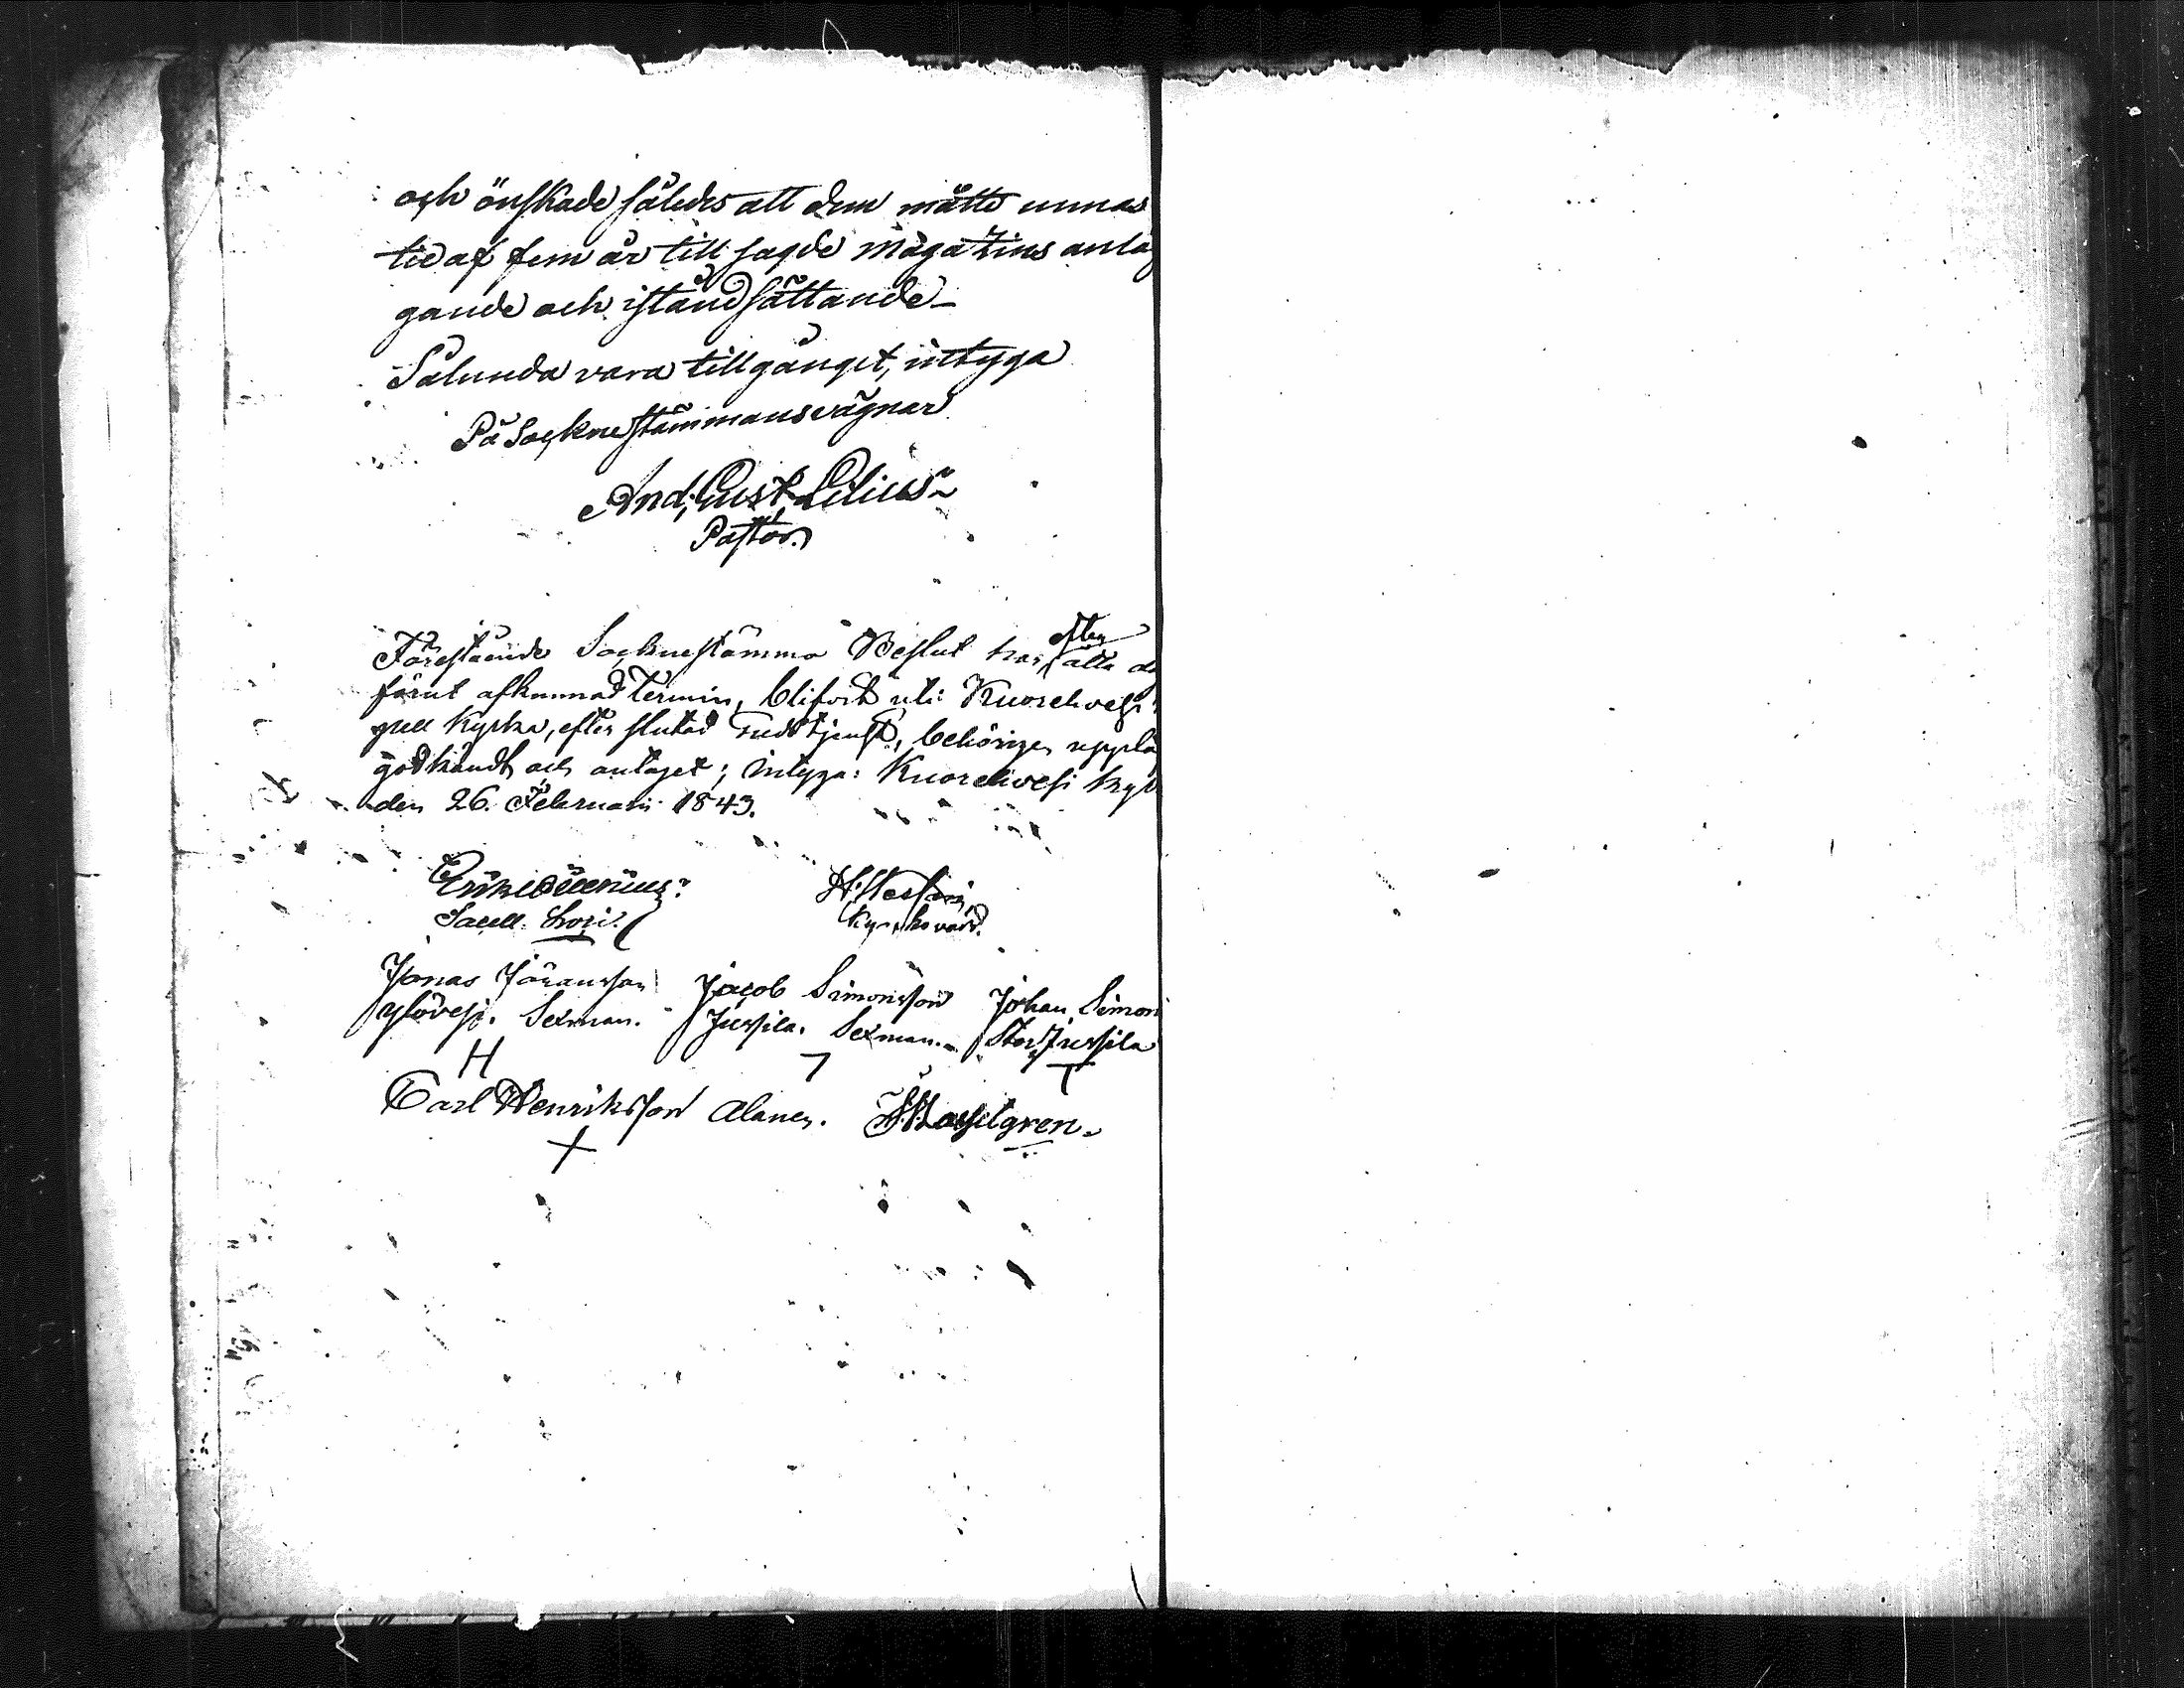 och önskade således att dem måtte unnas
tid af fem år till sagde Magazins anläg
gande och iståndsättande
Sålunda vara tillgånget, intyga
På Socknestämmans vägnar
And; Gust. Lilius
Pastor.
Förestående Socknestämmo Beslut har, efter åtta da
förut afkunnad termin, blifvit uti Kuorehvesi
Kyrka, efter slutad Gudstjenst, behörigen upplä
godkändt och antaget; intyga: Kuorehvesi kyr
den 26. Februari 1843.
Sacell.
Kyrkovärd.
Jonas Jöransson Jacob Simonsson Johan Simon
Ylövesi. Sexman. Jussila. Sexman. Stor Jussila
H
Carl Henriksson Alanen.